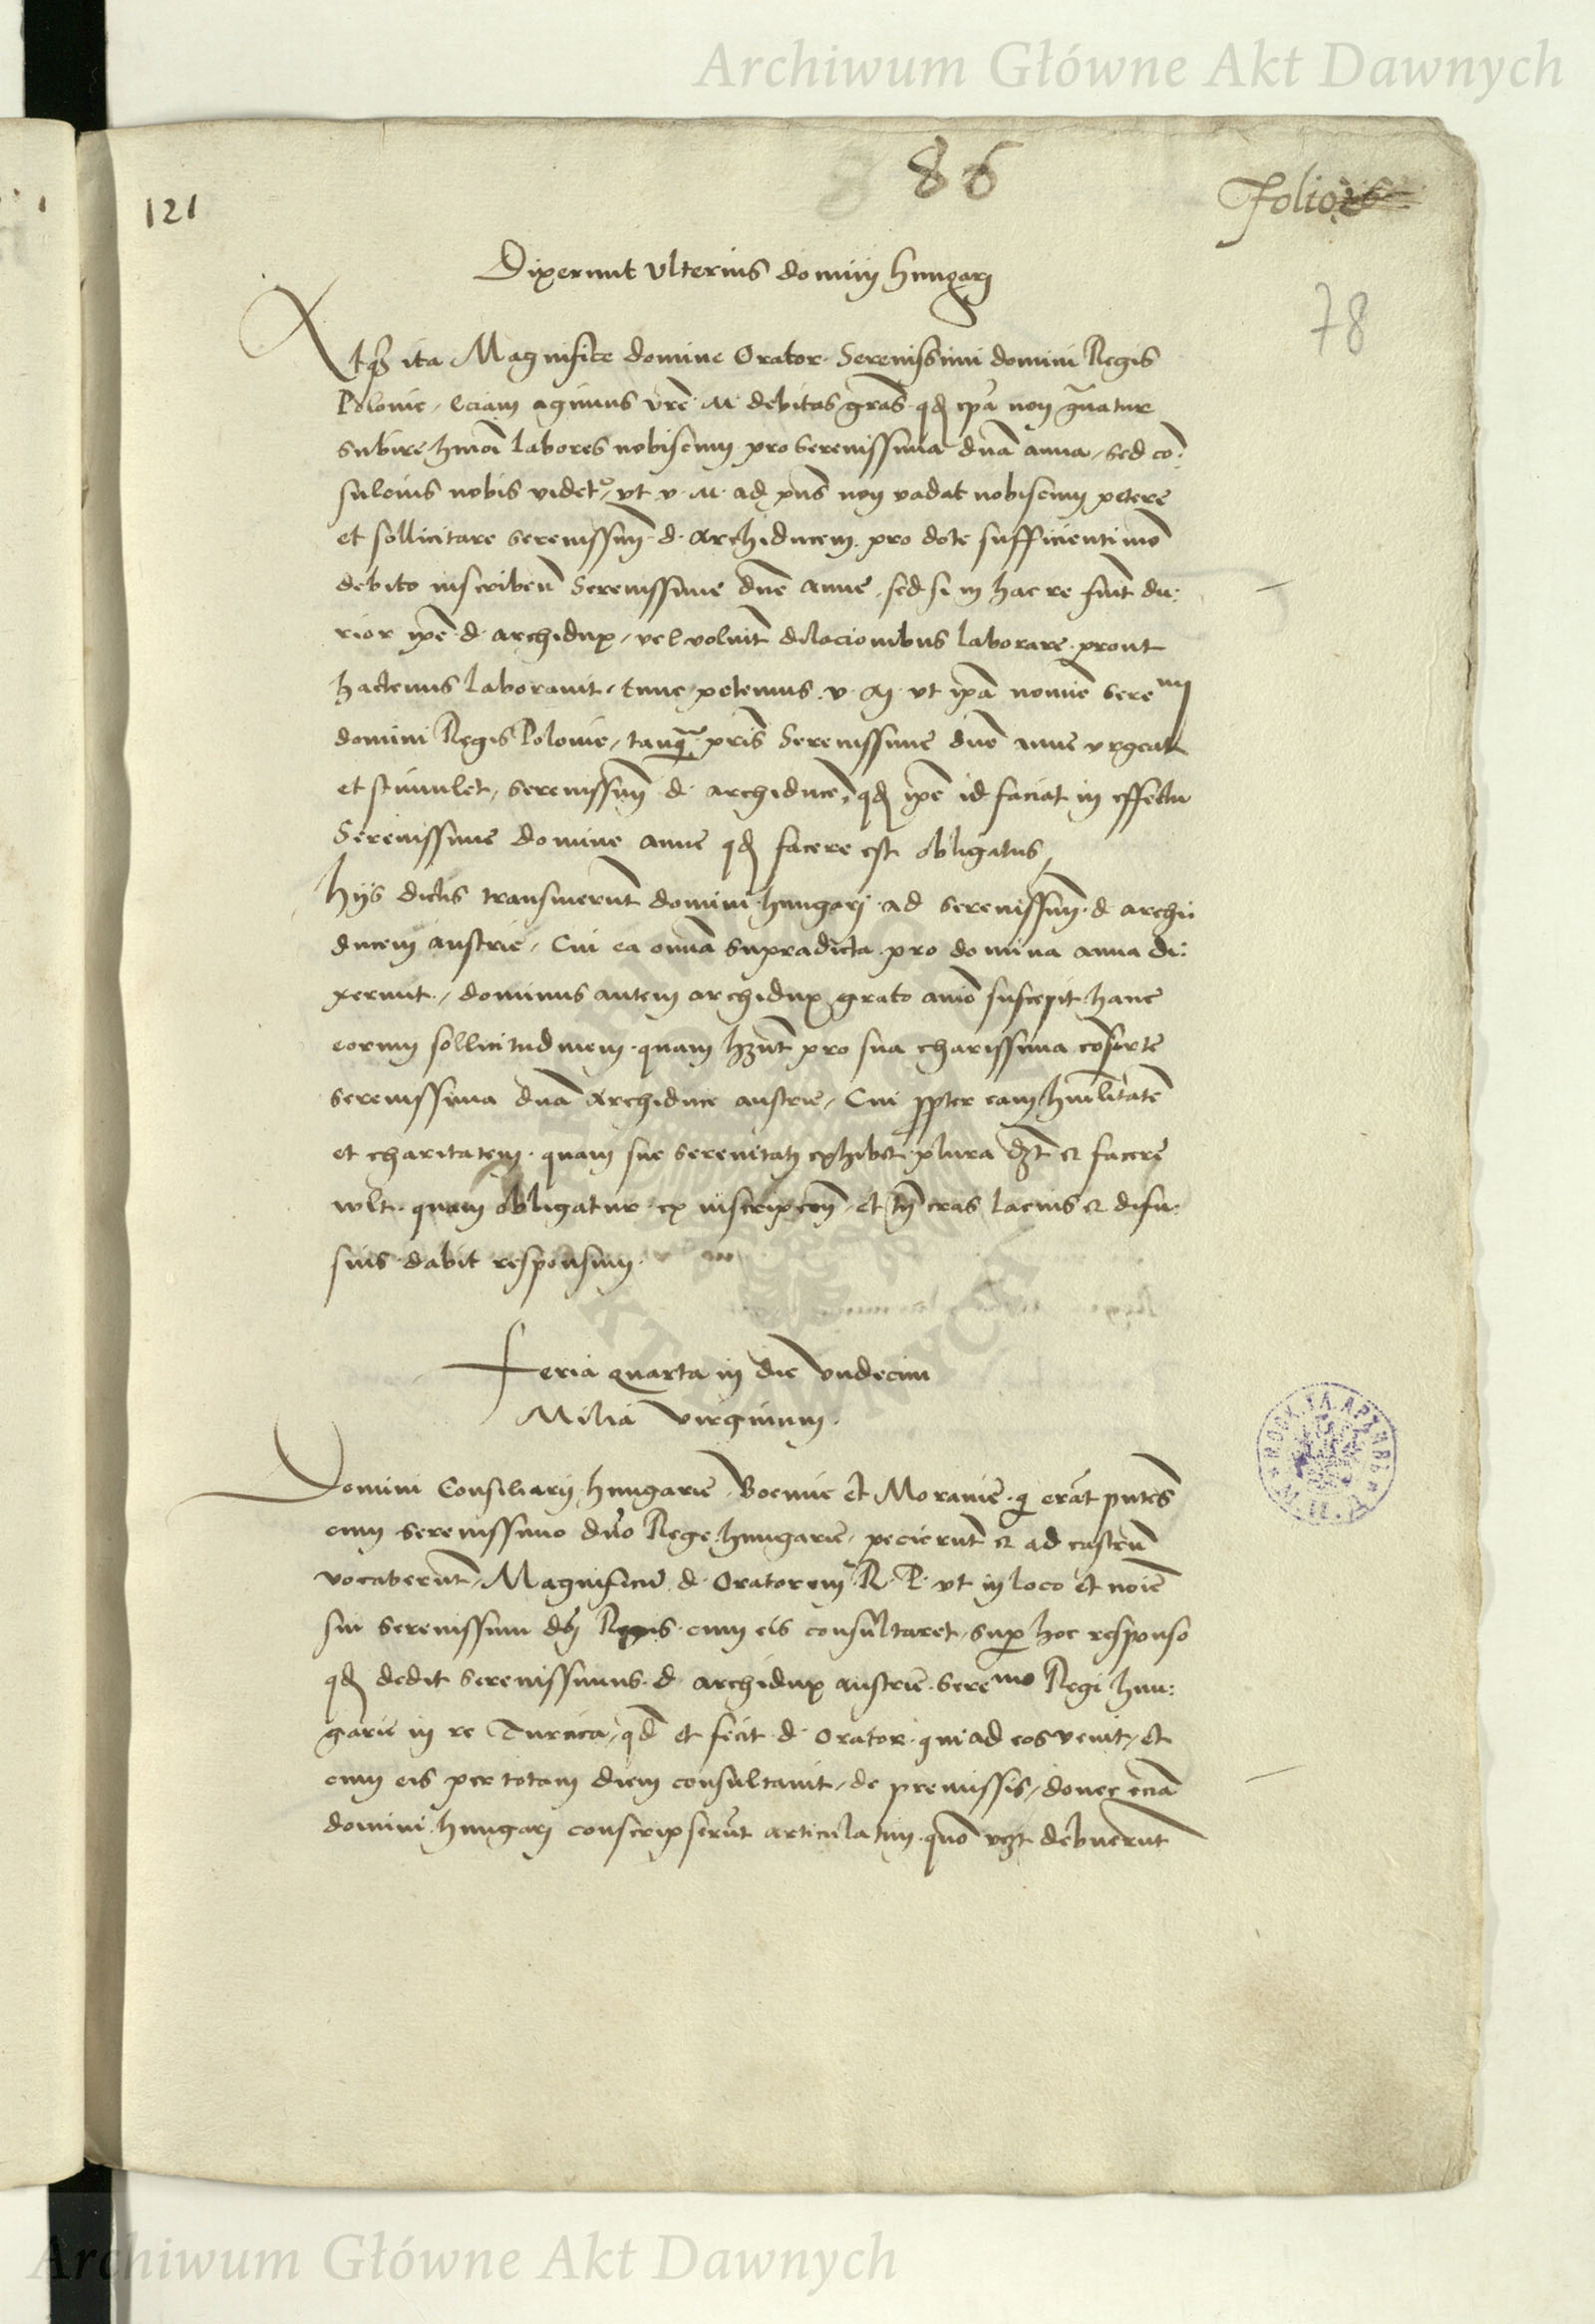 Archiwum Główne Akt Dawnych
86
121
Folio
78
Dixerunt vlterius domini hungari
ita Magnifice domine Orator Serenissimi domini Regis
Polonie, Eciam agimus vrē M debitas grās qd ipā non grauatur
subire hmōi labores nobiscum pro serenissima dnā anna, sed cō:
sulcius nobis videtr, vt v. M. ad pns non vadat nobiscum petere
et sollicitare serenissim d. Archiducem pro dote sufficienti mō
debito inscriben Serenissime dnē Anne, sed si in hac re fuit du:
rior ipē d. archidux, vel voluit dilacionibus laborare prout
hactenus laborauit, tunc petemus v. M vt ipā nomīe seremi
domini Regis Polonie, tanq̄ pris Serenissime dnē Anne vrgeat
et stimulet, serenissim d. archiducē, qd ipē id faciat in effectu
Serenissime domine anne qd facere est obligatus
Hijs dictis transiuerunt domini hungari ad serenissim d archi
ducem austrie, Cui ea omīa supradicta pro domina anna di:
xerunt, dominus autem archidux grato anīo suscepit hanc
eorum sollicitudinem quam hnt pro sua charissima cōsorte
serenissima dnā Archiduce austrie, Cui ppter eam humlitatē
et charitatem quam sue serenitati exhibet plura et facere
wlt quam obligatur ex inscripcōn et cras lacius et difu:
sius dabit responsum.
Feria quarta in die vndecim
Milia virginum.
Domini Consiliarij hungarie Boemie et Morauie q̄ erāt pntēs
cum serenissimo dnō Rege hungarie, pecierūt et ad castrū
vocaberūt, Magnificū d. Oratorem R. P. vt in loco et noīe
sui serenissimi dnj Regis cum eis consultaret, sup hoc responso
qd dedit serenissimus d archidux austrie seremo Regi hun:
garie in re Turcica, qd et fecit d. Orator qui ad eos venit, et
cum eis per totam diem consultauit, de premissis, donec eciā
domini hungari conscripserūt articulatim quō debuerunt
Archiwum Główne Akt Dawnych